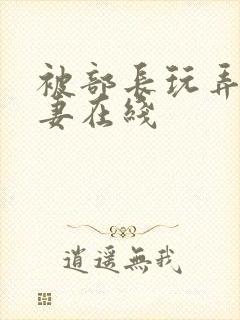 被部長玩弄
妻在綫
逍遥無我